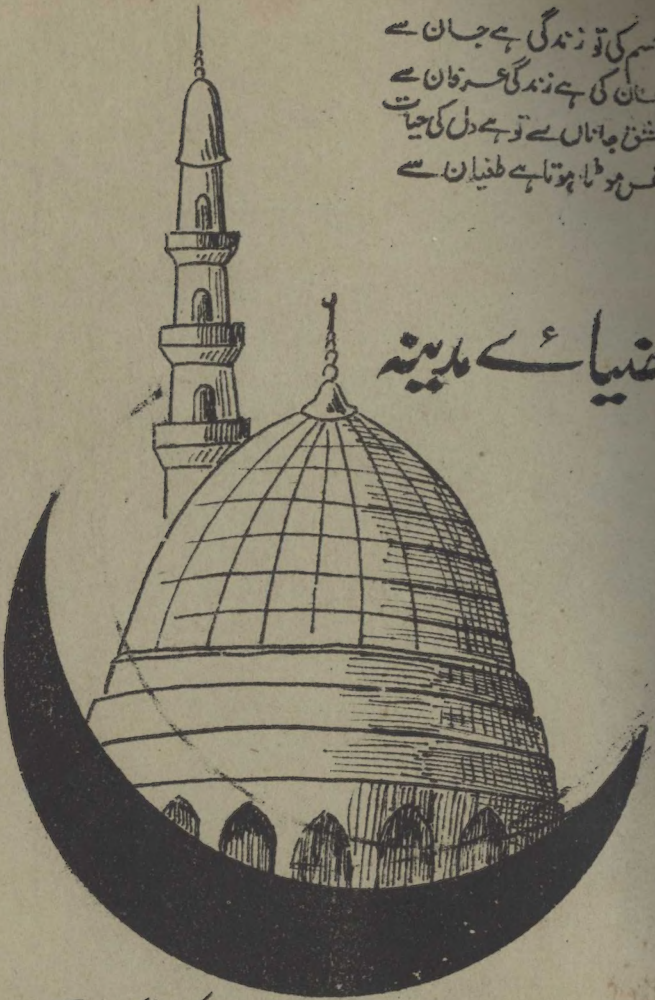 کی تو زندگی ہے جان سے
کی ہے زندگی عرفان سے
جاناں سے تو ہے دل کی حیات
موٹا ہوتا ہے طغیان سے
ضیائے مدینہ